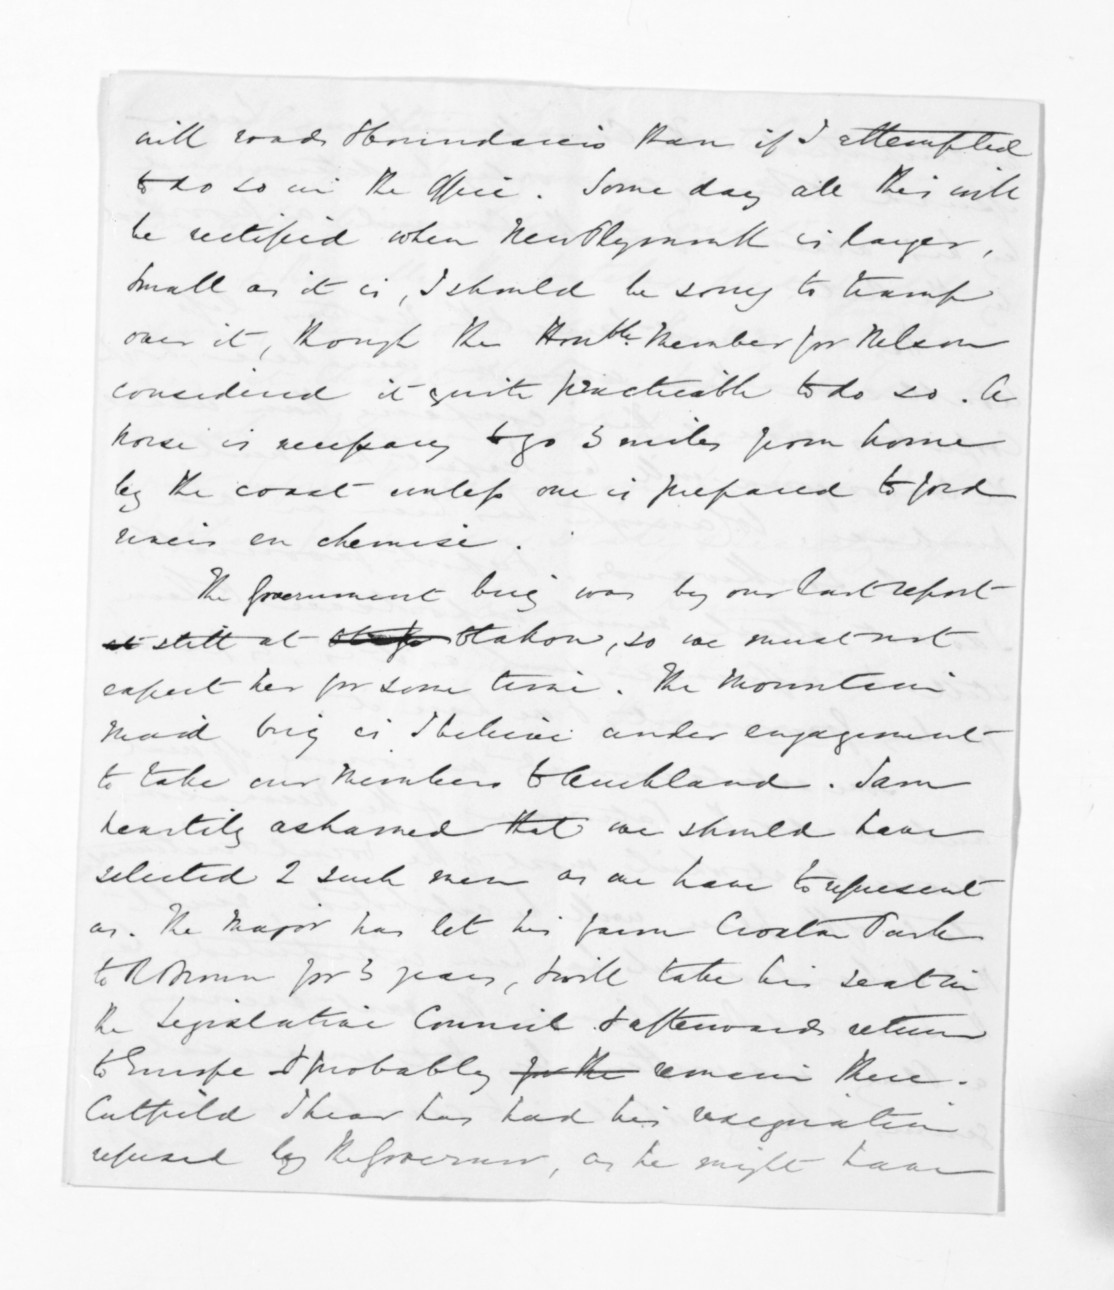 will roads & boundaries than if I attempted
to do so in the Office. Some day all this will
be rectified when New Plymouth is larger,
Small as it is, I should be sorry to tramp
over it, though the Honble. Member for Nelson
considered it quite practicable to do so. A
horse is necessary to go 3 miles from home
by the coast unless one is prepared to ford
rivers en chemise.
The Government brig was by our last report
at still at Otago Otakou, so we must not
expect her for some time. The Mountain
Maid brig is I believe under engagement
to take our Members to Auckland. I am
heartily ashamed that we should have
selected 2 such men as we have to represent
us. The Major has let his farm Croxton Park
to R Brown for 3 years, & will take his seat in
the Legislative Council & afterwards return
to Europe & probably for the remain there.
Cutfield I hear has had his resignation
refused by the Governor, as he might have